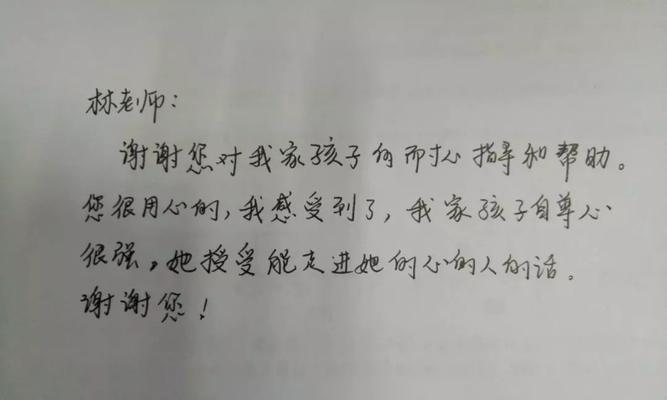 林老师：
谢谢您对我家孩子的耐心指导和帮助。
您很用心的，我感受到了，我家孩子自尊心
很强，她接受能走进她的心的人的话。
谢谢您！